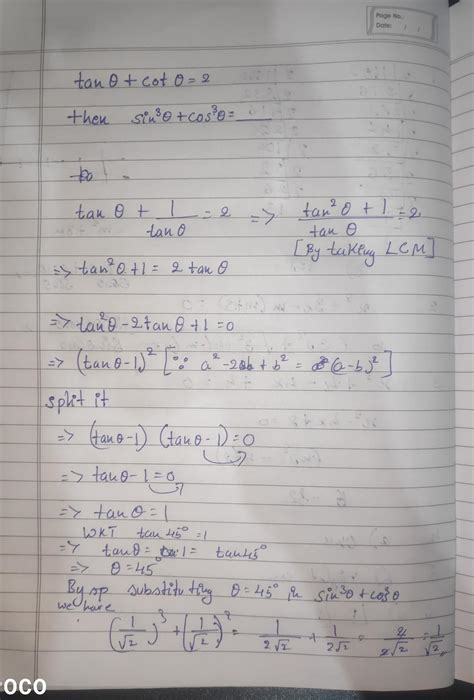 Page No.
Date: / /
tan θ + cot θ = 2
then sin³θ + cos³θ = ____
tan θ + 1/tan θ = 2 => (tan²θ + 1)/tan θ = 2
[By taking LCM]
=> tan²θ + 1 = 2 tan θ
=> tan²θ - 2tan θ + 1 = 0
=> (tan θ - 1)² [∵ a² - 2ab + b² = (a - b)²]
split it
=> (tan θ - 1) (tan θ - 1) = 0
=> tan θ - 1 = 0
=> tan θ = 1
WKT tan 45° = 1
=> tan θ = 1 = tan 45°
=> θ = 45°
By substituting θ = 45° in sin³θ + cos³θ
we have
(1/√2)³ + (1/√2)³ = 1/2√2 + 1/2√2 = 2/2√2 = 1/√2
OCO